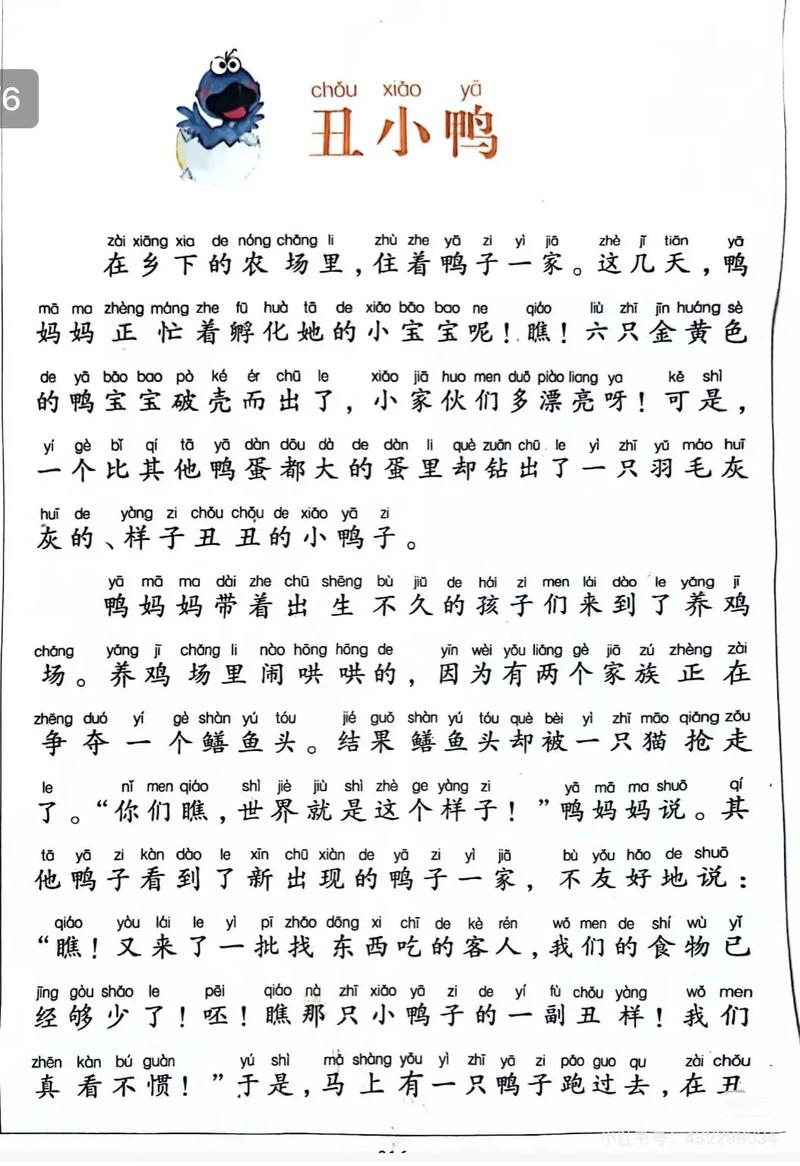 6
chǒu xiǎo yā
丑小鸭
zài xiāng xia de nóng chǎng li zhù zhe yā zi yì jiā zhè jǐ tiān yā
在乡下的农场里,住着鸭子一家。这几天,鸭
mā ma zhèng máng zhe fū huà tā de xiǎo bǎo bao ne qiáo liù zhī jīn huáng sè
妈妈正忙着孵化她的小宝宝呢!瞧!六只金黄色
de yā bǎo bao pò ké ér chū le xiǎo jiā huo men duō piào liang ya kě shì
的鸭宝宝破壳而出了,小家伙们多漂亮呀!可是,
yí gè bǐ qí tā yā dàn dōu dà de dàn li què zuān chū le yì zhī yǔ máo huī
一个比其他鸭蛋都大的蛋里却钻出了一只羽毛灰
huī de yàng zi chǒu chǒu de xiǎo yā zi
灰的、样子丑丑的小鸭子。
yā mā ma dài zhe chū shēng bù jiǔ de hái zi men lái dào le yǎng jī
鸭妈妈带着出生不久的孩子们来到了养鸡
chǎng yǎng jī chǎng li nào hōng hōng de yīn wèi yǒu liǎng gè jiā zú zhèng zài
场。养鸡场里闹哄哄的,因为有两个家族正在
zhēng duó yí gè shàn yú tóu jié guǒ shàn yú tóu què bèi yì zhī māo qiǎng zǒu
争夺一个鳝鱼头。结果鳝鱼头却被一只猫抢走
le nǐ men qiáo shì jiè jiù shì zhè ge yàng zi yā mā ma shuō qí
了。“你们瞧,世界就是这个样子!”鸭妈妈说。其
tā yā zi kàn dào le xīn chū xiàn de yā zi yì jiā bù yǒu hǎo de shuō
他鸭子看到了新出现的鸭子一家,不友好地说:
qiáo yòu lái le yì pī zhǎo dōng xi chī de kè rén wǒ men de shí wù yǐ
“瞧!又来了一批找东西吃的客人,我们的食物已
jīng gòu shǎo le pēi qiáo nà zhī xiǎo yā zi de yí fù chǒu yàng wǒ men
经够少了!呸!瞧那只小鸭子的一副丑样!我们
zhēn kàn bú guàn yú shì mǎ shàng yǒu yì zhī yā zi pǎo guo qu zài chǒu
真看不惯!”于是,马上有一只鸭子跑过去,在丑
小红书号:482298034